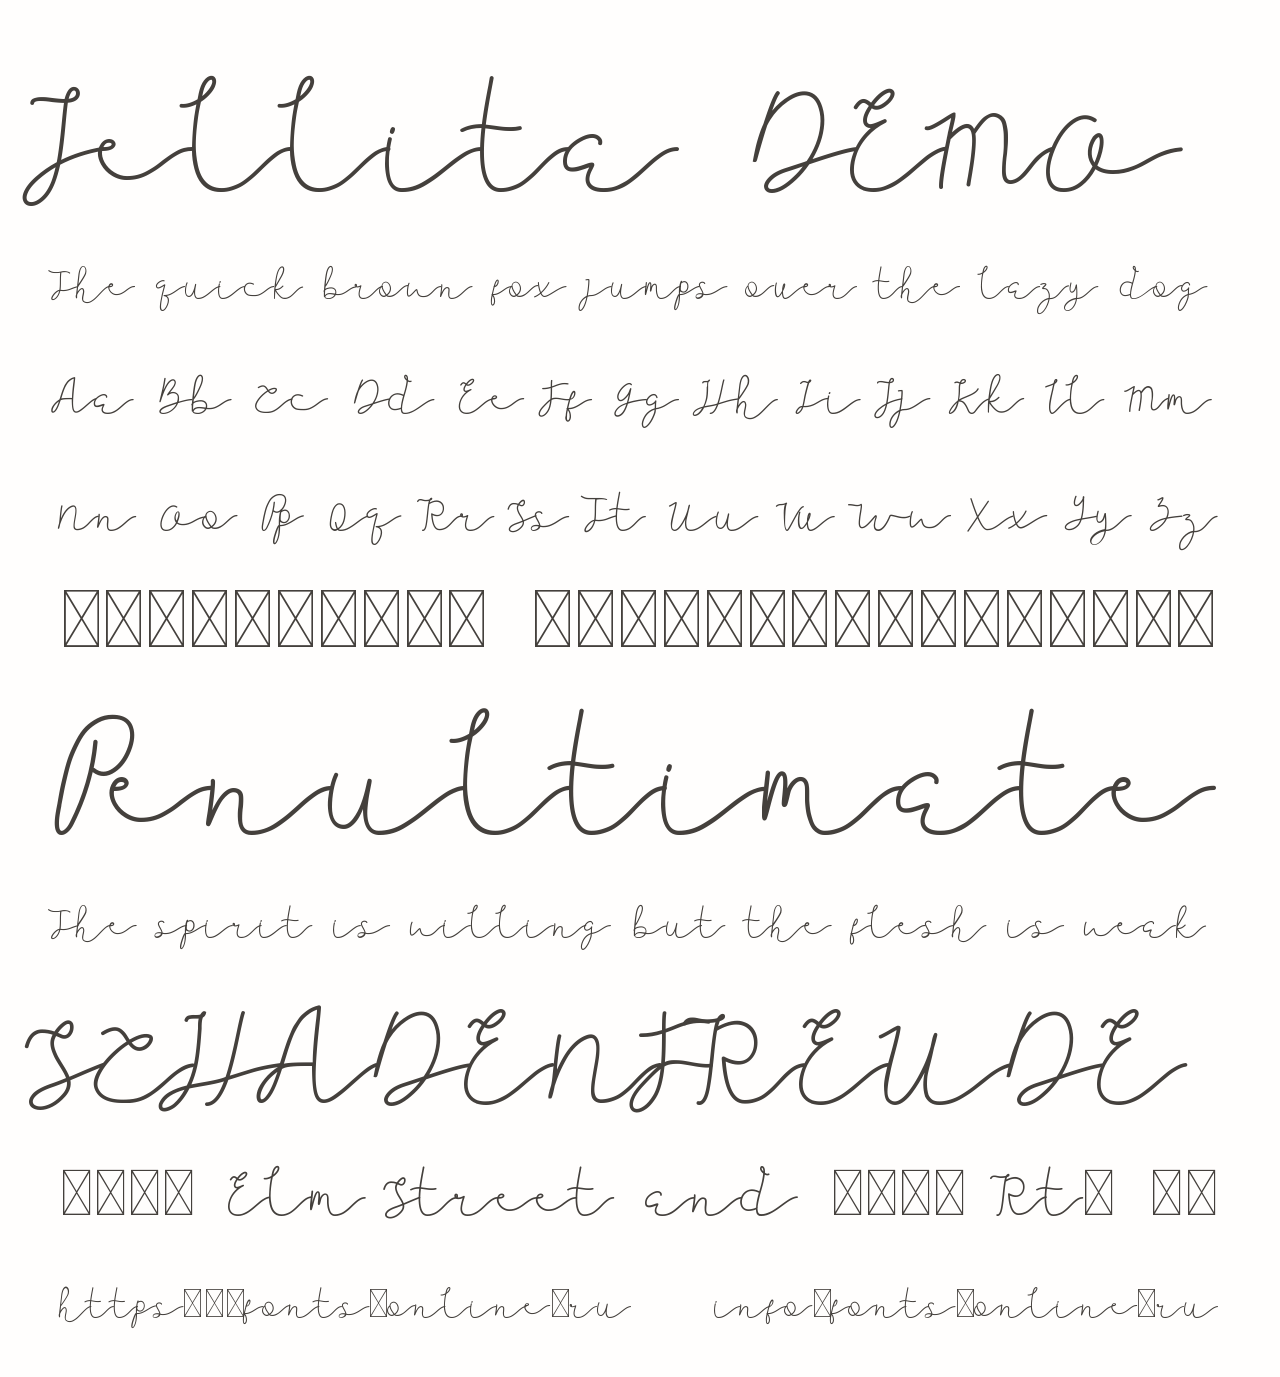 Jellita DEMO
The quick brown fox jumps over the lazy dog
Aa Bb Cc Dd Ee Ff Gg Hh Ii Jj Kk Ll Mm
Nn Oo Pp Qq Rr Ss Tt Uu Vv Ww Xx Yy Zz
Penultimate
The spirit is willing but the flesh is weak
SCHADENFREUDE
Elm Street and Rt
https fonts online ru info fonts online ru